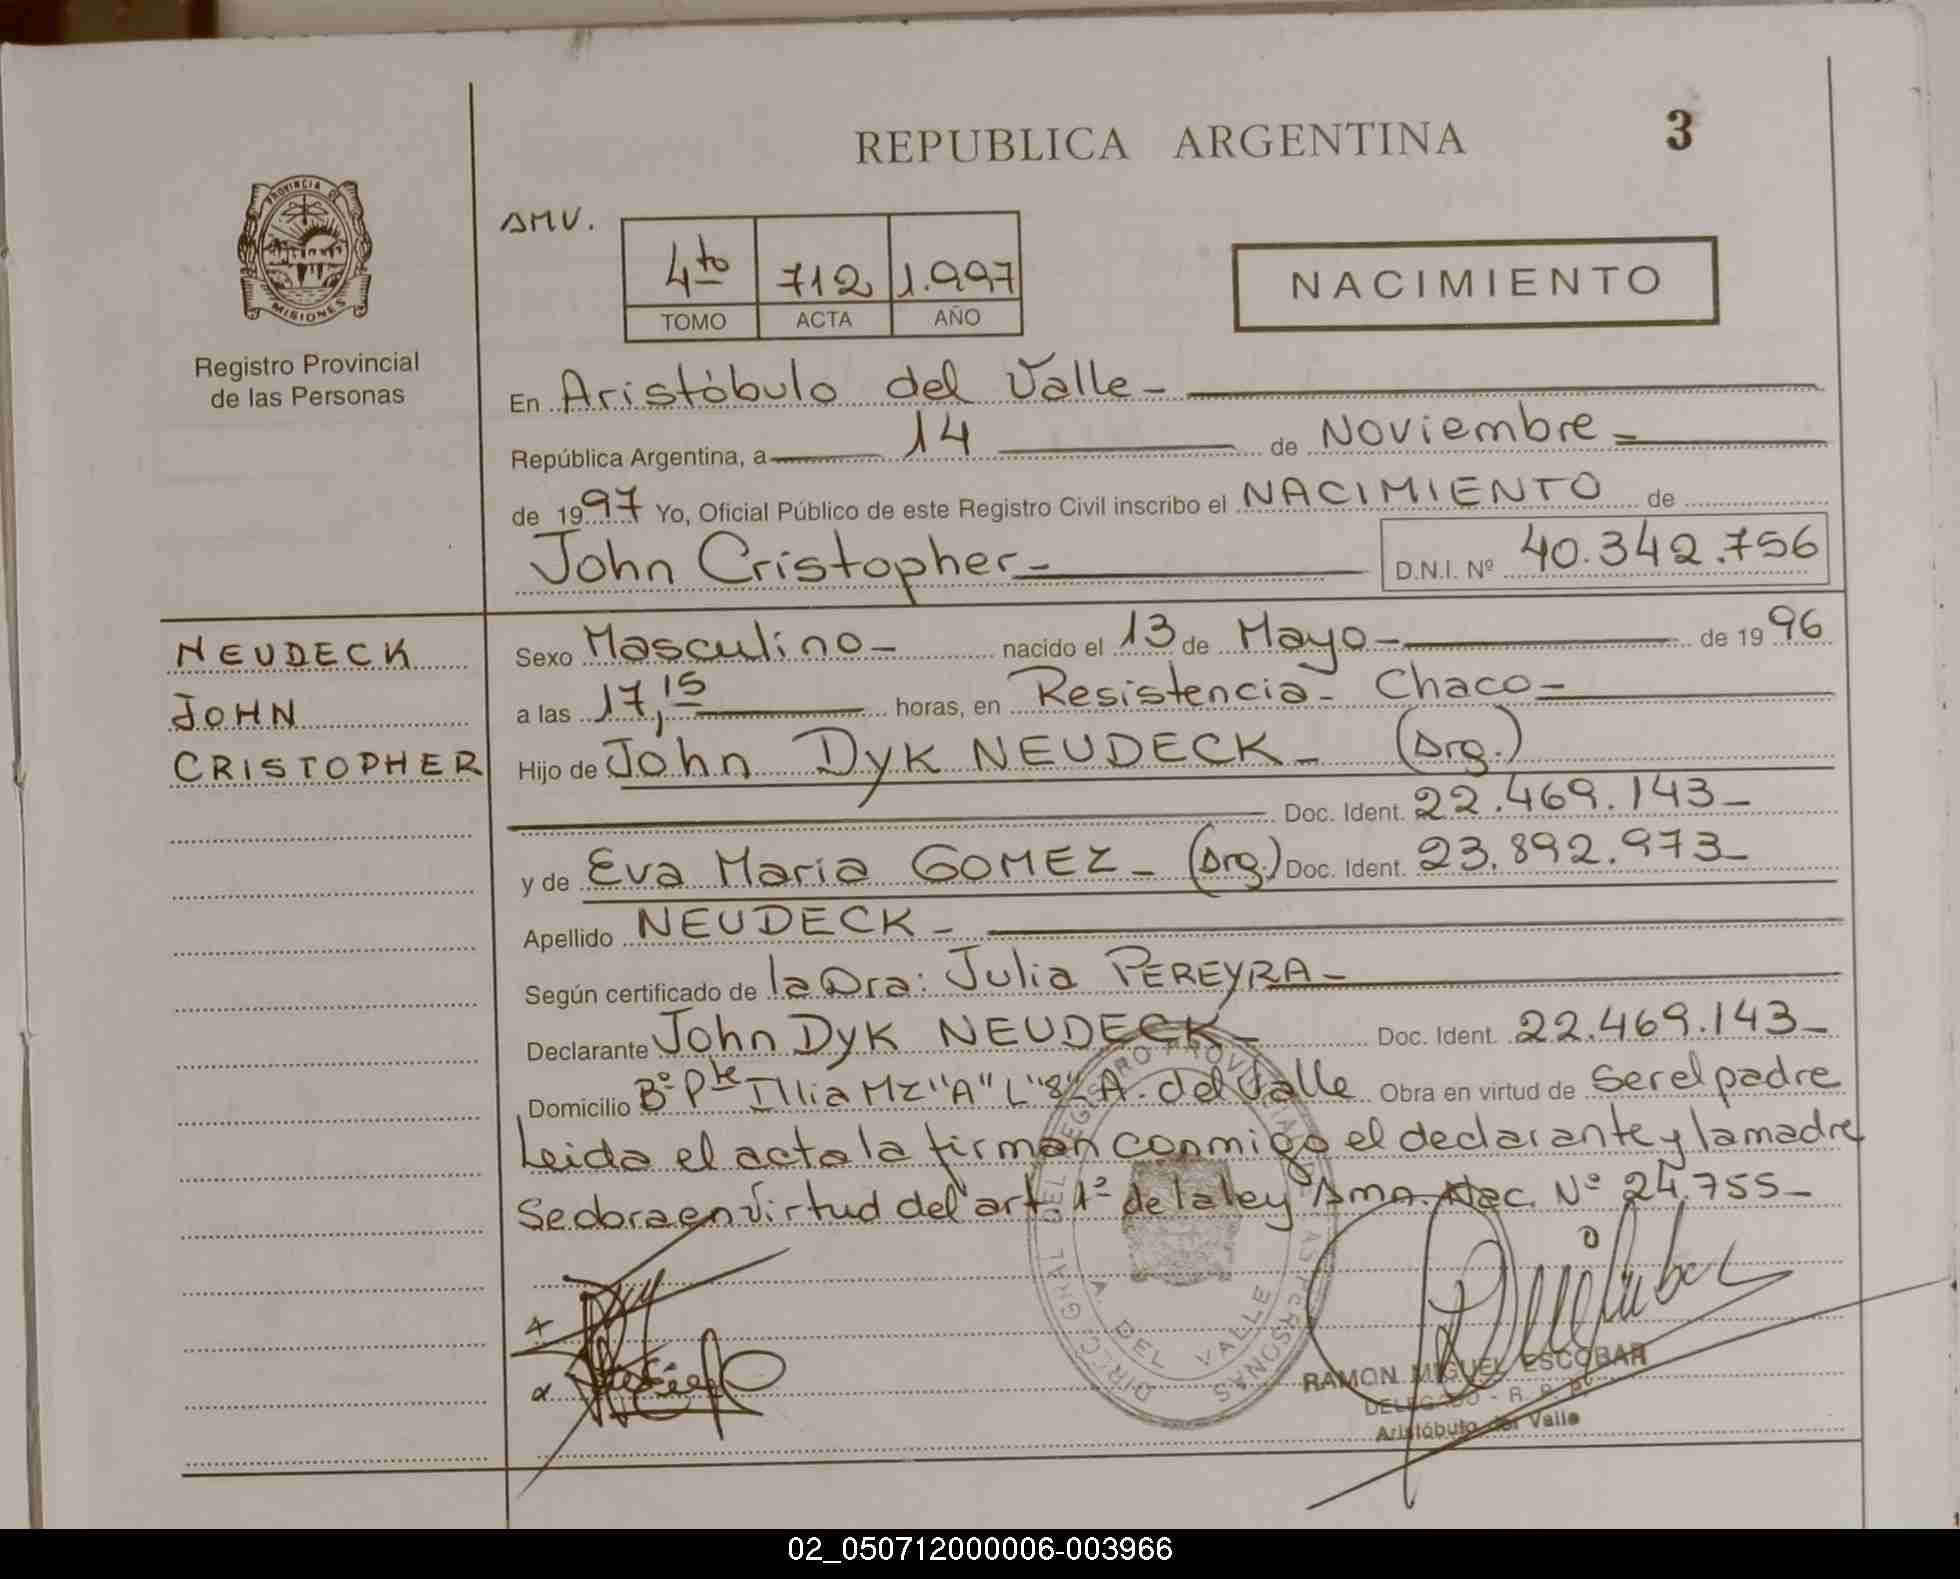 REPUBLICA ARGENTINA
3
PROVINCIA DE
MISIONES
Registro Provincial
de las Personas
AMV.
4to 712 1.997
TOMO ACTA AÑO
NACIMIENTO
En Aristóbulo del Valle-
República Argentina, a 14 de Noviembre-
de 1997 Yo, Oficial Público de este Registro Civil inscribo el NACIMIENTO de
John Cristopher- D.N.I. Nº 40.342.756
NEUDECK
JOHN
CRISTOPHER
Sexo Masculino- nacido el 13 de Mayo- de 1996
a las 17,15 horas, en Resistencia- Chaco-
Hijo de John Dyk NEUDECK- (Arg.)
Doc. Ident. 22.469.143-
y de Eva Maria GOMEZ- (Arg.) Doc. Ident. 23.892.973-
Apellido NEUDECK-
Según certificado de la Dra: Julia PEREYRA-
Declarante John Dyk NEUDECK- Doc. Ident. 22.469.143-
Domicilio Bº Pte Illia Mz "A" L "8" A. del Valle Obra en virtud de Ser el padre
Leida el acta la firman conmigo el declarante y la madre
Se labra en virtud del art. 1º de la ley Nac. Nº 24.755-
A. DEL VALLE
RAMON MIGUEL ESCOBAR
DELEGADO - R. P. P.
Aristóbulo del Valle
02_050712000006-003966